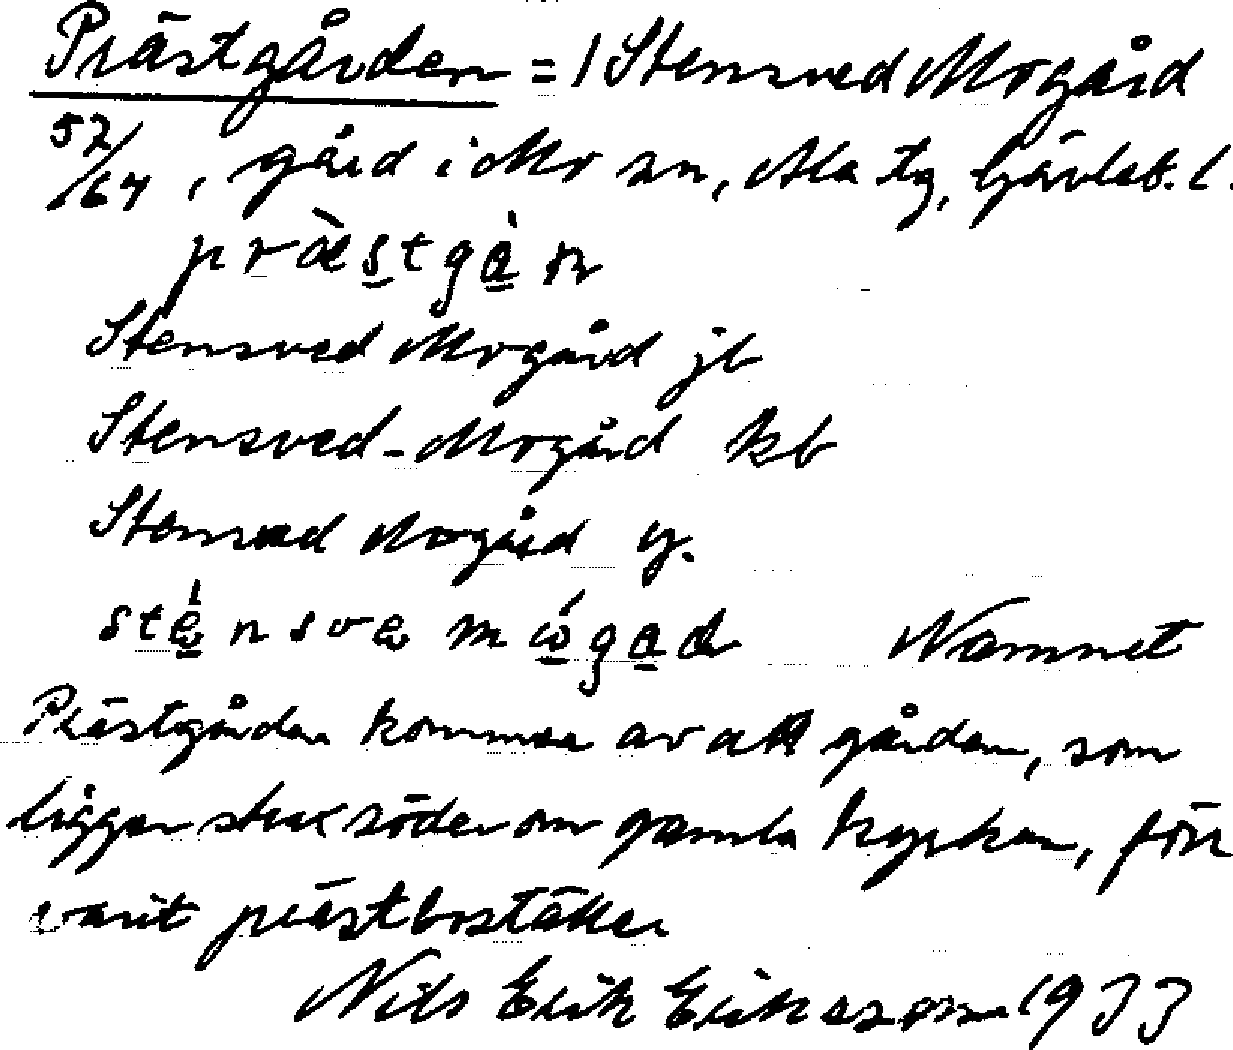 Prästgården = / Stensved Mogård
52/67, gård i Mo sn, Ala tg, Gävleb. l.
præ̀stgån
Stensved Mogård jb
Stensved-Mogård kb
Stensved Mogård g.
sténsve mógad Namnet
Prästgården kommer av att gården, som
ligger strax söder om gamla kyrkan, förr
varit prästboställe
Nils Erik Eriksson 1933